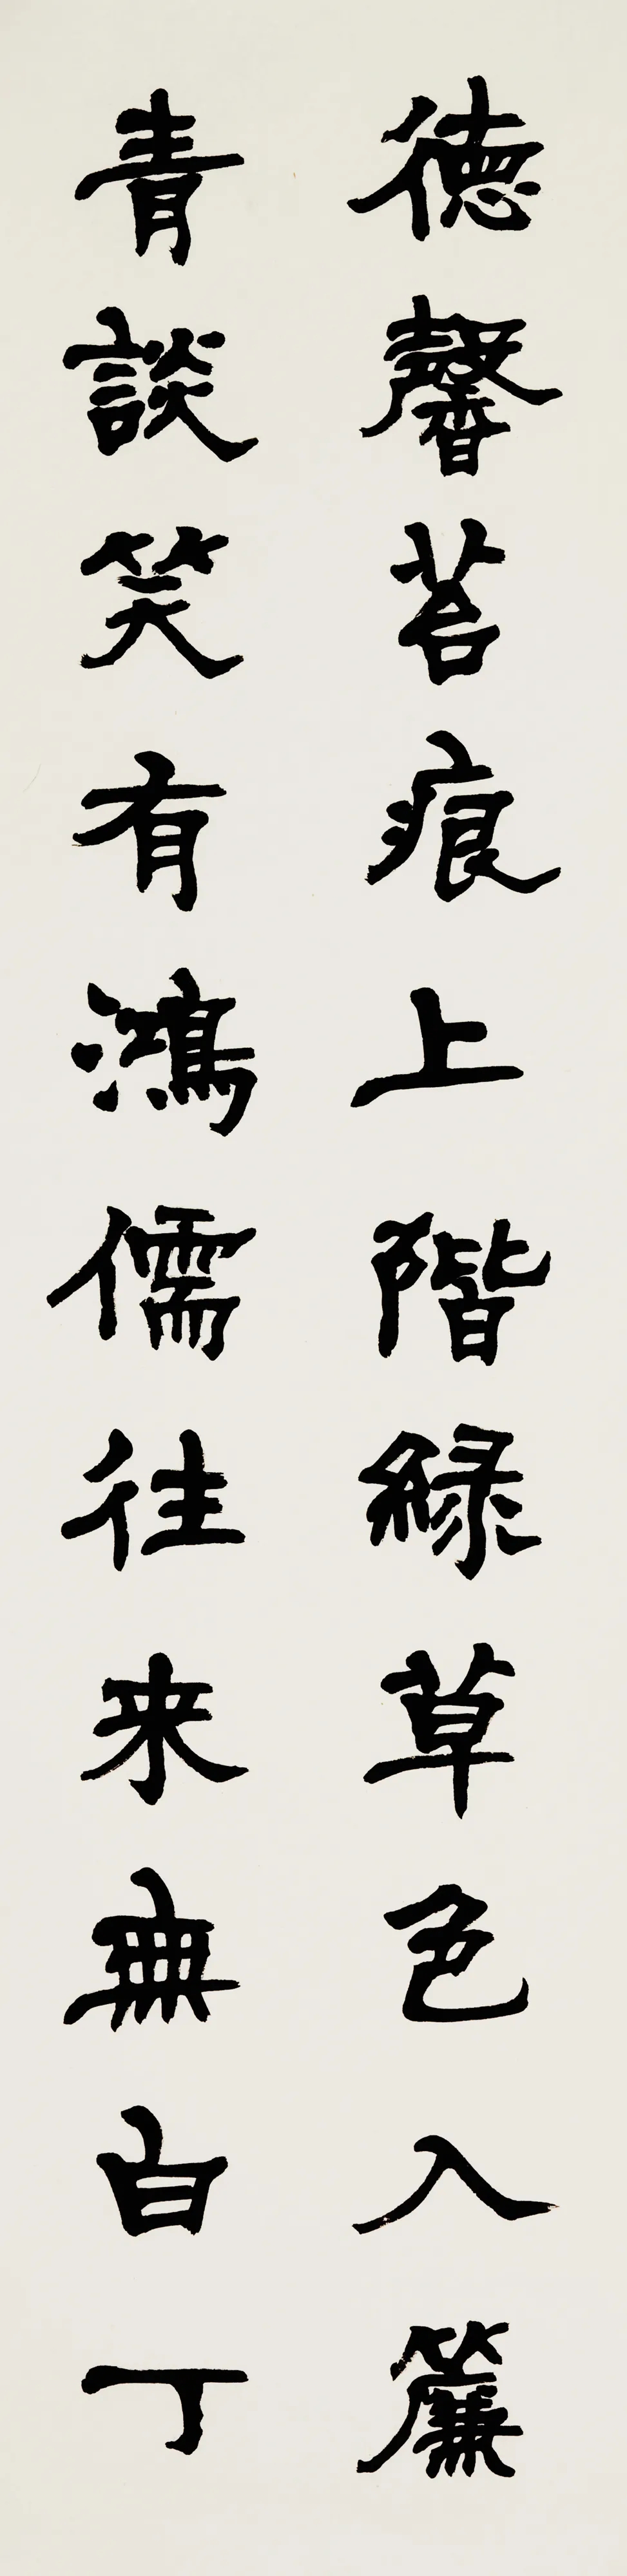 德馨苔痕上階緑草色入簾
青談笑有鴻儒往来無白丁